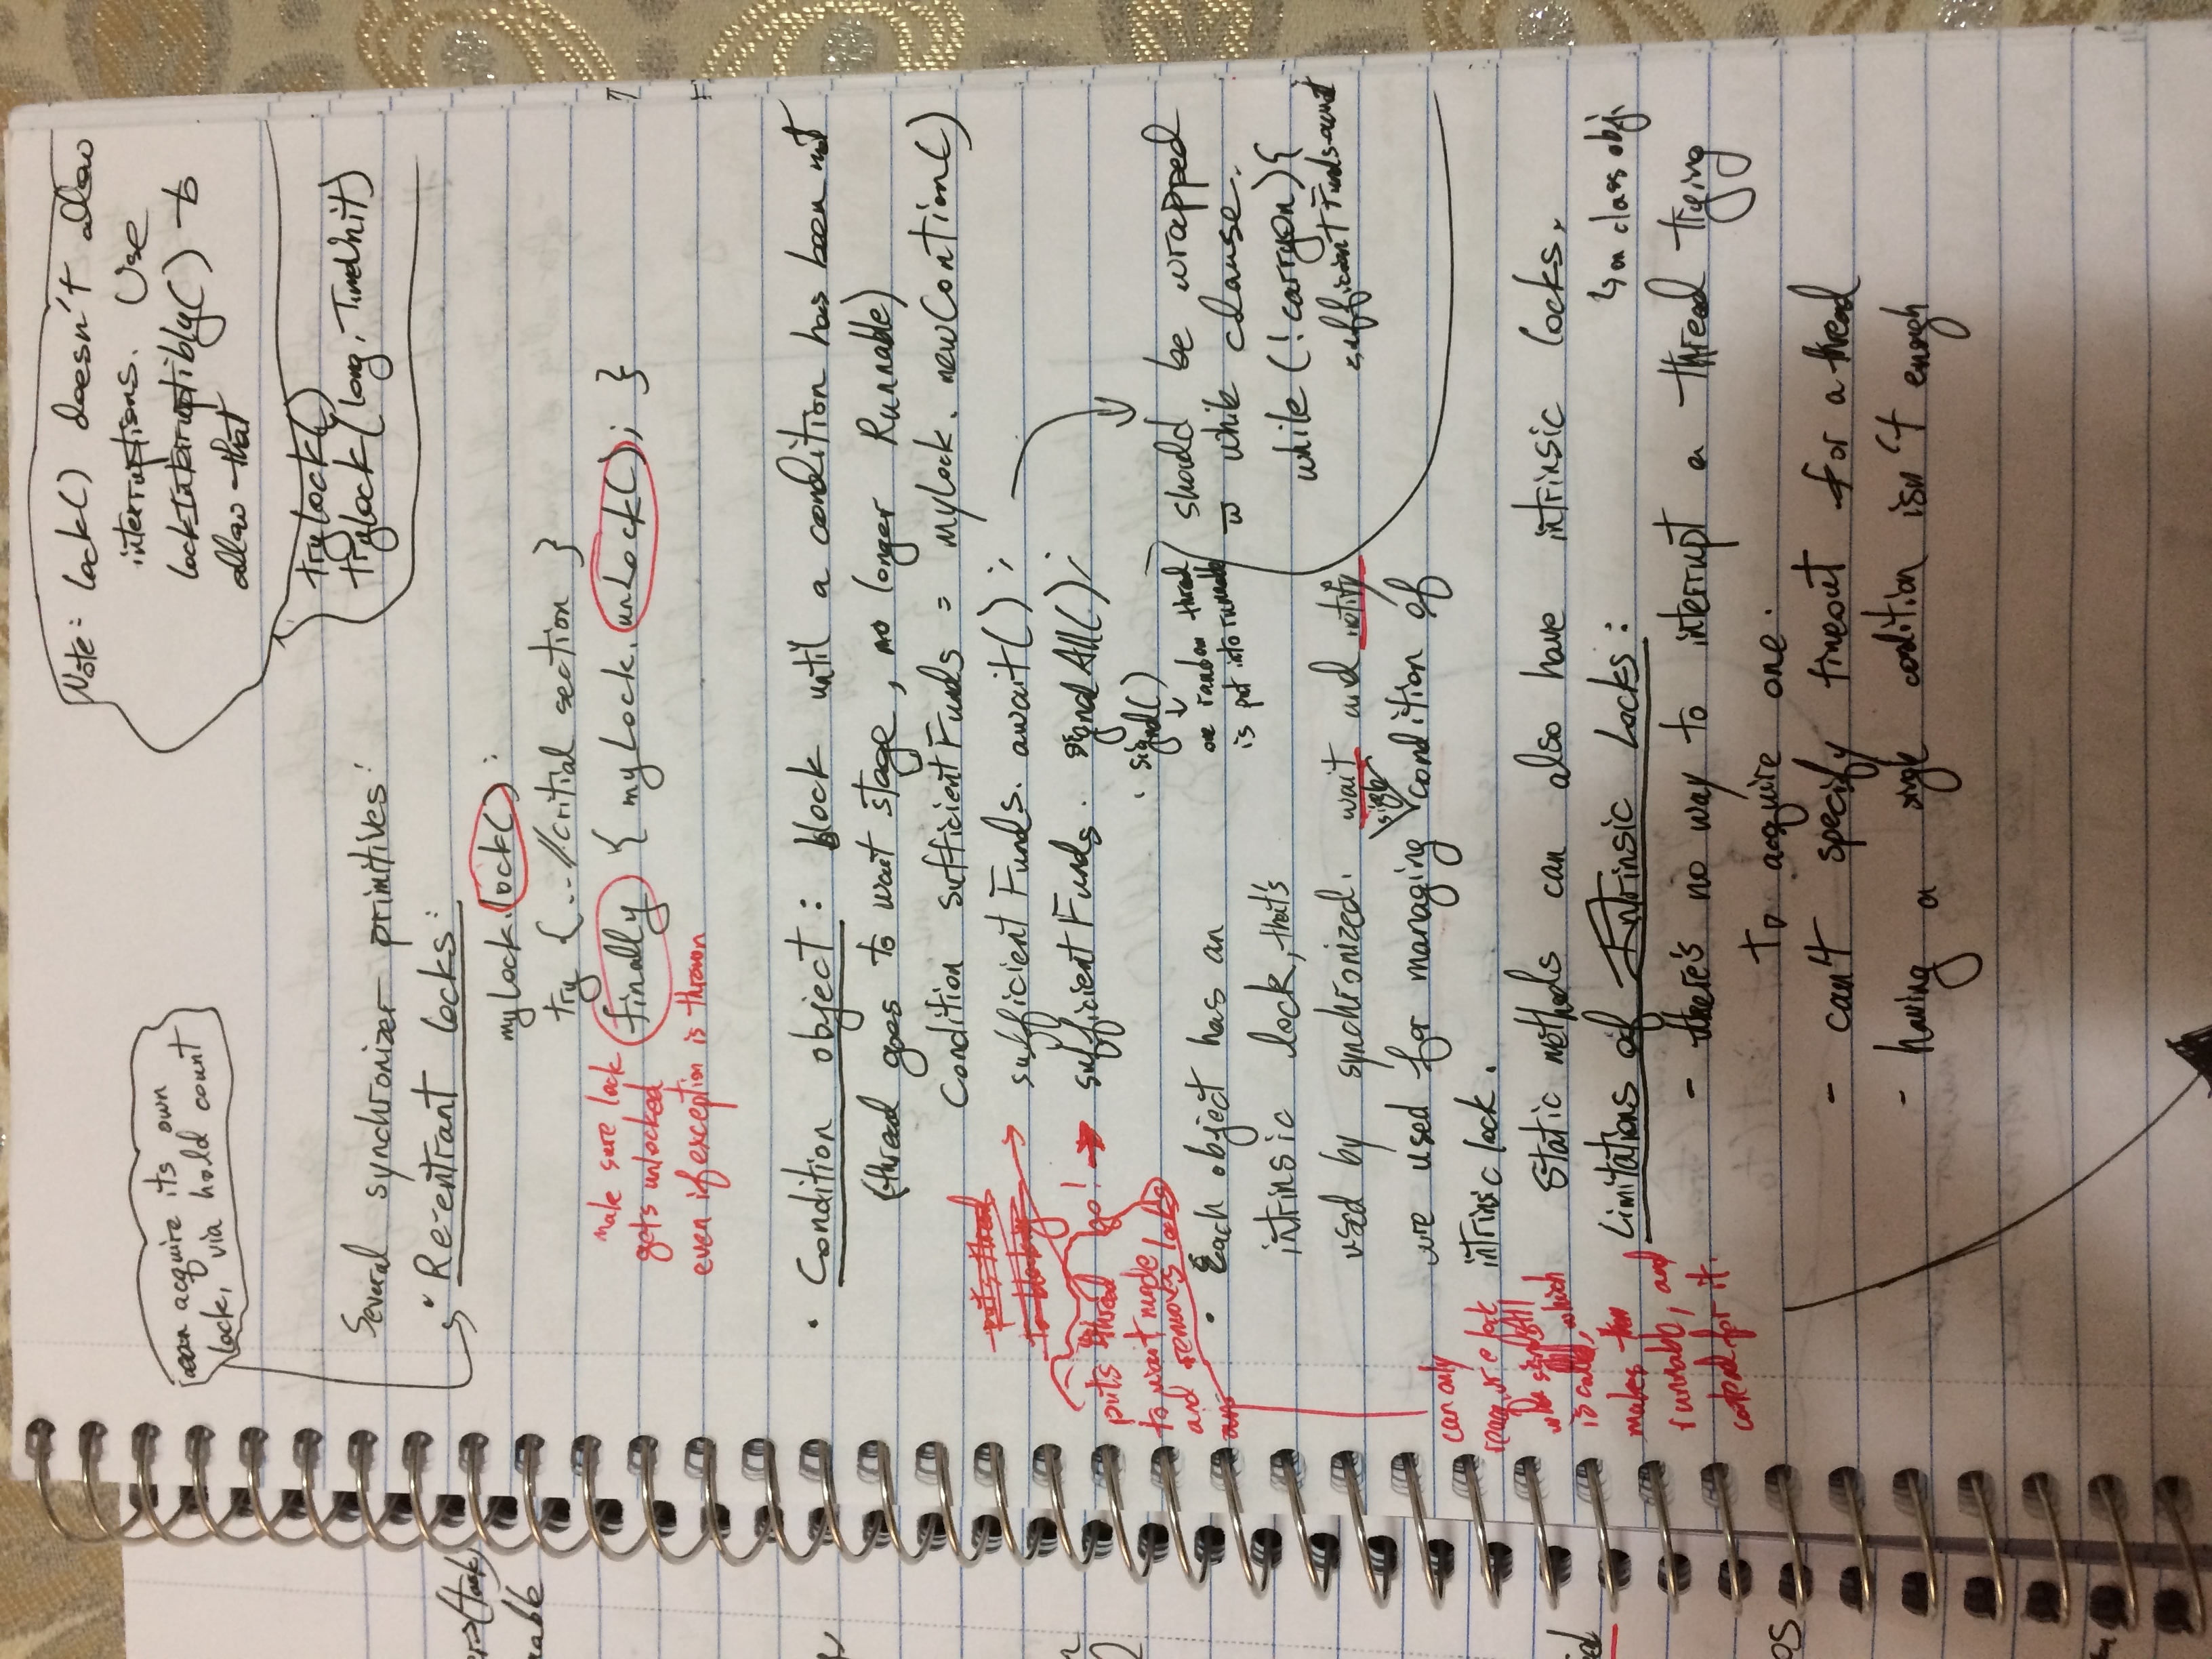 Note: lock() doesn't allow
interruptions. Use
lockInterruptibly() to
allow that
tryLock()
tryLock(long, TimeUnit)
can acquire its own
lock, via hold count
Several synchronizer primitives:
• Re-entrant locks:
myLock.lock();
try { ... //critial section }
finally { myLock.unLock(); }
make sure lock
gets unlocked
even if exception is thrown
• Condition object: block until a condition has been met
(thread goes to wait stage, no longer Runnable)
Condition sufficientFunds = mylock.newContion()
sufficientFunds.await();
sufficientFunds.signalAll();
signal()
↓
one random thread
is put into runnable
puts thread
to blocking
puts thread
to wait mode
and removes locks
go! →
should be wrapped
in while clause.
while (!carryon){
sufficientFunds.await
• Each object has an
intrinsic lock, that's
used by synchronized. wait and notify
are used for managing single condition of
intrinsic lock.
can only
reacquire lock
when signalAll
is called, which
makes them
runnable, and
contend for it.
Static methods can also have intrinsic locks.
↳ on class obj.
Limitations of Intrinsic Locks:
- there's no way to interrupt a thread trying
to acquire one.
- can't specify timeout for a thread
- having a single condition isn't enough
(task)
nable